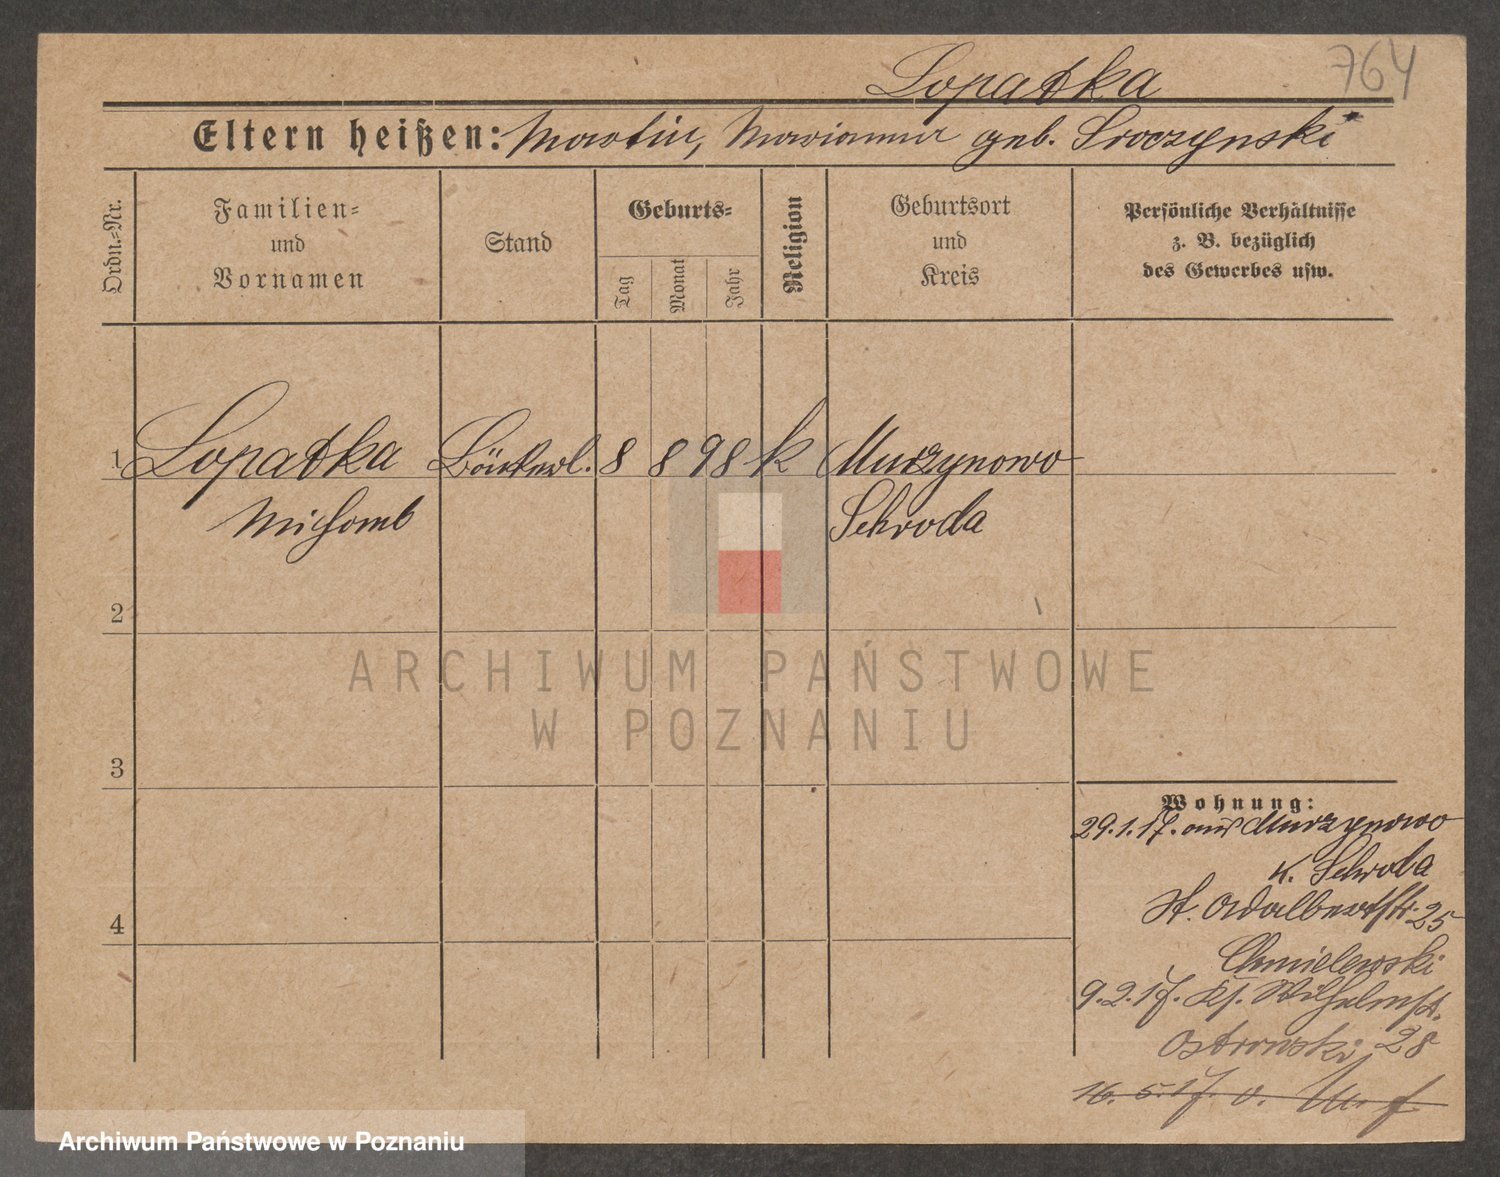 764
Lopatka
Eltern heißen: Martin, Marianna geb. Sroczynski
Ordn.=Nr.
Familien=
und
Vornamen
Stand
Geburts=
Tag
Monat
Jahr
Religion
Geburtsort
und
Kreis
Persönliche Verhältnisse
z. B. bezüglich
des Gewerbes usw.
1 Lopatka Bäckerl. 8 8 98 k Murzynowo
Schroda
2
3
4
Wohnung:
29.1.17. aus Murzynowo
K. Schroda
St. Adalbertstr. 25
Chmielewski
9.2.17. Kg. Wilhelmst.
Ostrowski 28
16. 5. 17. v.
ARCHIWUM PAŃSTWOWE
W POZNANIU
Archiwum Państwowe w Poznaniu